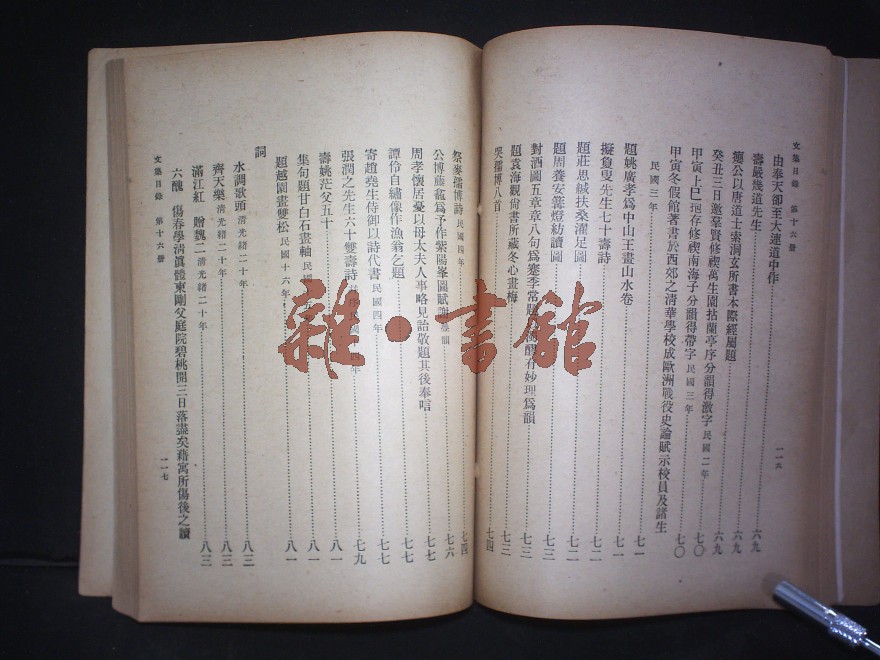 文集目錄 第十六册
一一六
由奉天卻至大連道中作……六九
壽嚴幾道先生……六九
癭公以唐道士索洞玄所書本際經屬題……六九
癸丑三日邀羣賢修禊萬生園拈蘭亭序分韻得激字 民國二年……六九
甲寅上巳抱存修禊南海子分韻得帶字 民國三年……七〇
甲寅冬假館著書於西郊之清華學校成歐洲戰役史論賦示校員及諸生
民國三年……七〇
題姚廣孝爲中山王畫山水卷……七一
擬負叟先生七十壽詩……七一
題莊思緘扶桑濯足圖……七二
題周養安篝燈紡讀圖……七二
對酒圖五章章八句爲蹇季常題 有妙理爲韻……七三
題袁海觀尙書所藏冬心畫梅……七三
哭孺博八首……七四
祭麥孺博詩 民國四年……七四
公博作藤龕爲予作紫陽峯圖賦謝 韻……七六
周孝懷居憂以母太夫人事略見詒敬題其後奉唁……七七
譚伶自繡像作漁翁乞題……七七
寄趙堯生侍御以詩代書 民國四年……七七
張潤之先生六十雙壽詩 年……七九
壽姚茫父五十……八一
集句題甘白石畫軸 民國……八一
題越園畫雙松 民國十六年……八一
詞
水調歌頭 清光緒二十年……八三
齊天樂 清光緒二十年……八三
滿江紅 贈魏二 清光緒二十年……八三
六醜 傷春學清眞體東剛父庭院碧桃開三日落盡矣藉寓所傷後之讀
文集目錄 第十六册
一一七
雜·書館